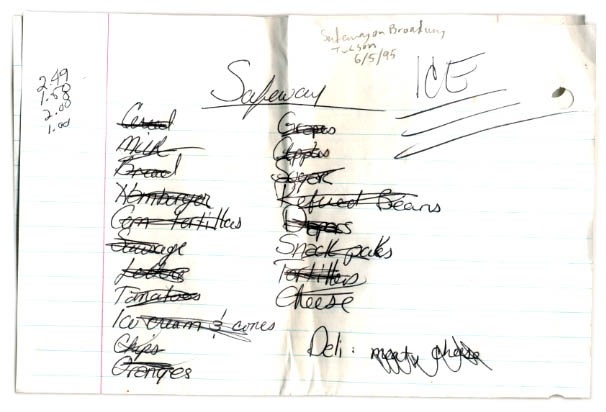 Safeway on Broadway
Tucson
6/5/95
ICE
2.49
1.58
2.00
1.00
Safeway
Cereal
Milk
Bread
Hamburger
Corn tortillas
Sausage
Lettuce
Tomatoes
Ice cream & cones
Chips
Oranges
Grapes
Apples
Sugar
Refried Beans
Diapers
Snack paks
Tortillas
Cheese
Deli: meat & cheese